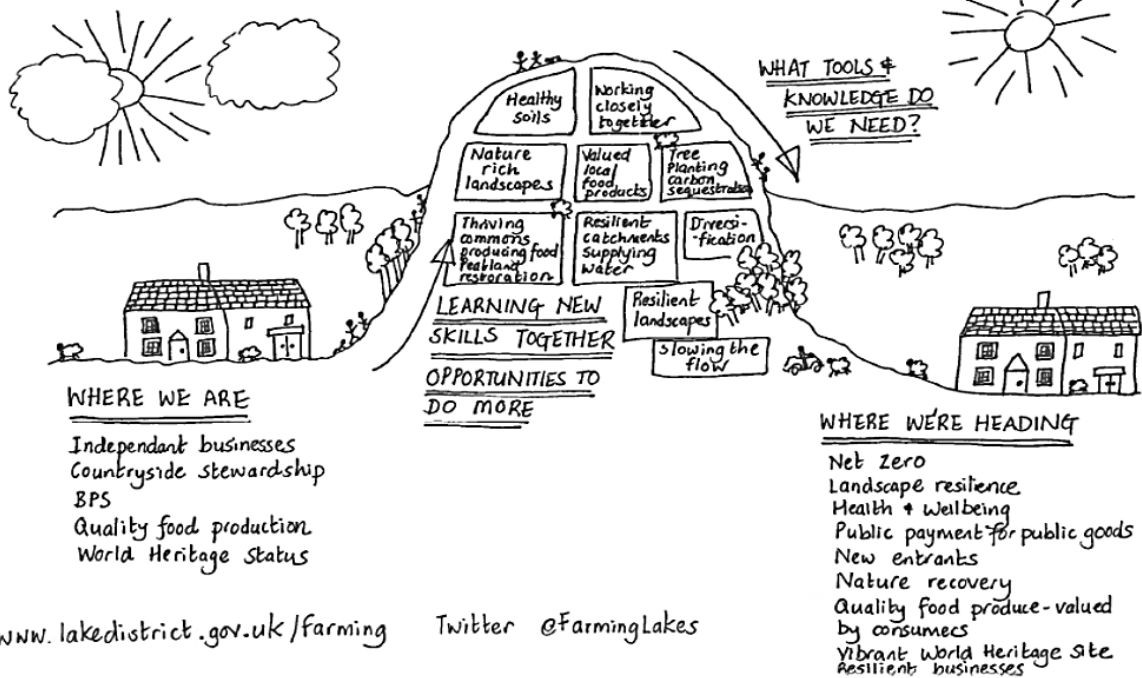 WHAT TOOLS &
KNOWLEDGE DO
WE NEED?
Healthy
soils
Working
closely
together
Nature
rich
landscapes
Valued
local
food
products
Tree
Planting
carbon
sequestration
Thriving
commons
producing food
Peatland
restoration
Resilient
catchments
Supplying
water
Diversi-
-fication
Resilient
landscapes
Slowing the
flow
LEARNING NEW
SKILLS TOGETHER
OPPORTUNITIES TO
DO MORE
WHERE WE ARE
Independant businesses
Countryside stewardship
BPS
Quality food production
World Heritage status
WHERE WE'RE HEADING
Net Zero
Landscape resilience
Health & Wellbeing
Public payment for public goods
New entrants
Nature recovery
Quality food produce-valued
by consumers
Vibrant World Heritage Site
Resilient businesses
www.lakedistrict.gov.uk/farming Twitter @FarmingLakes